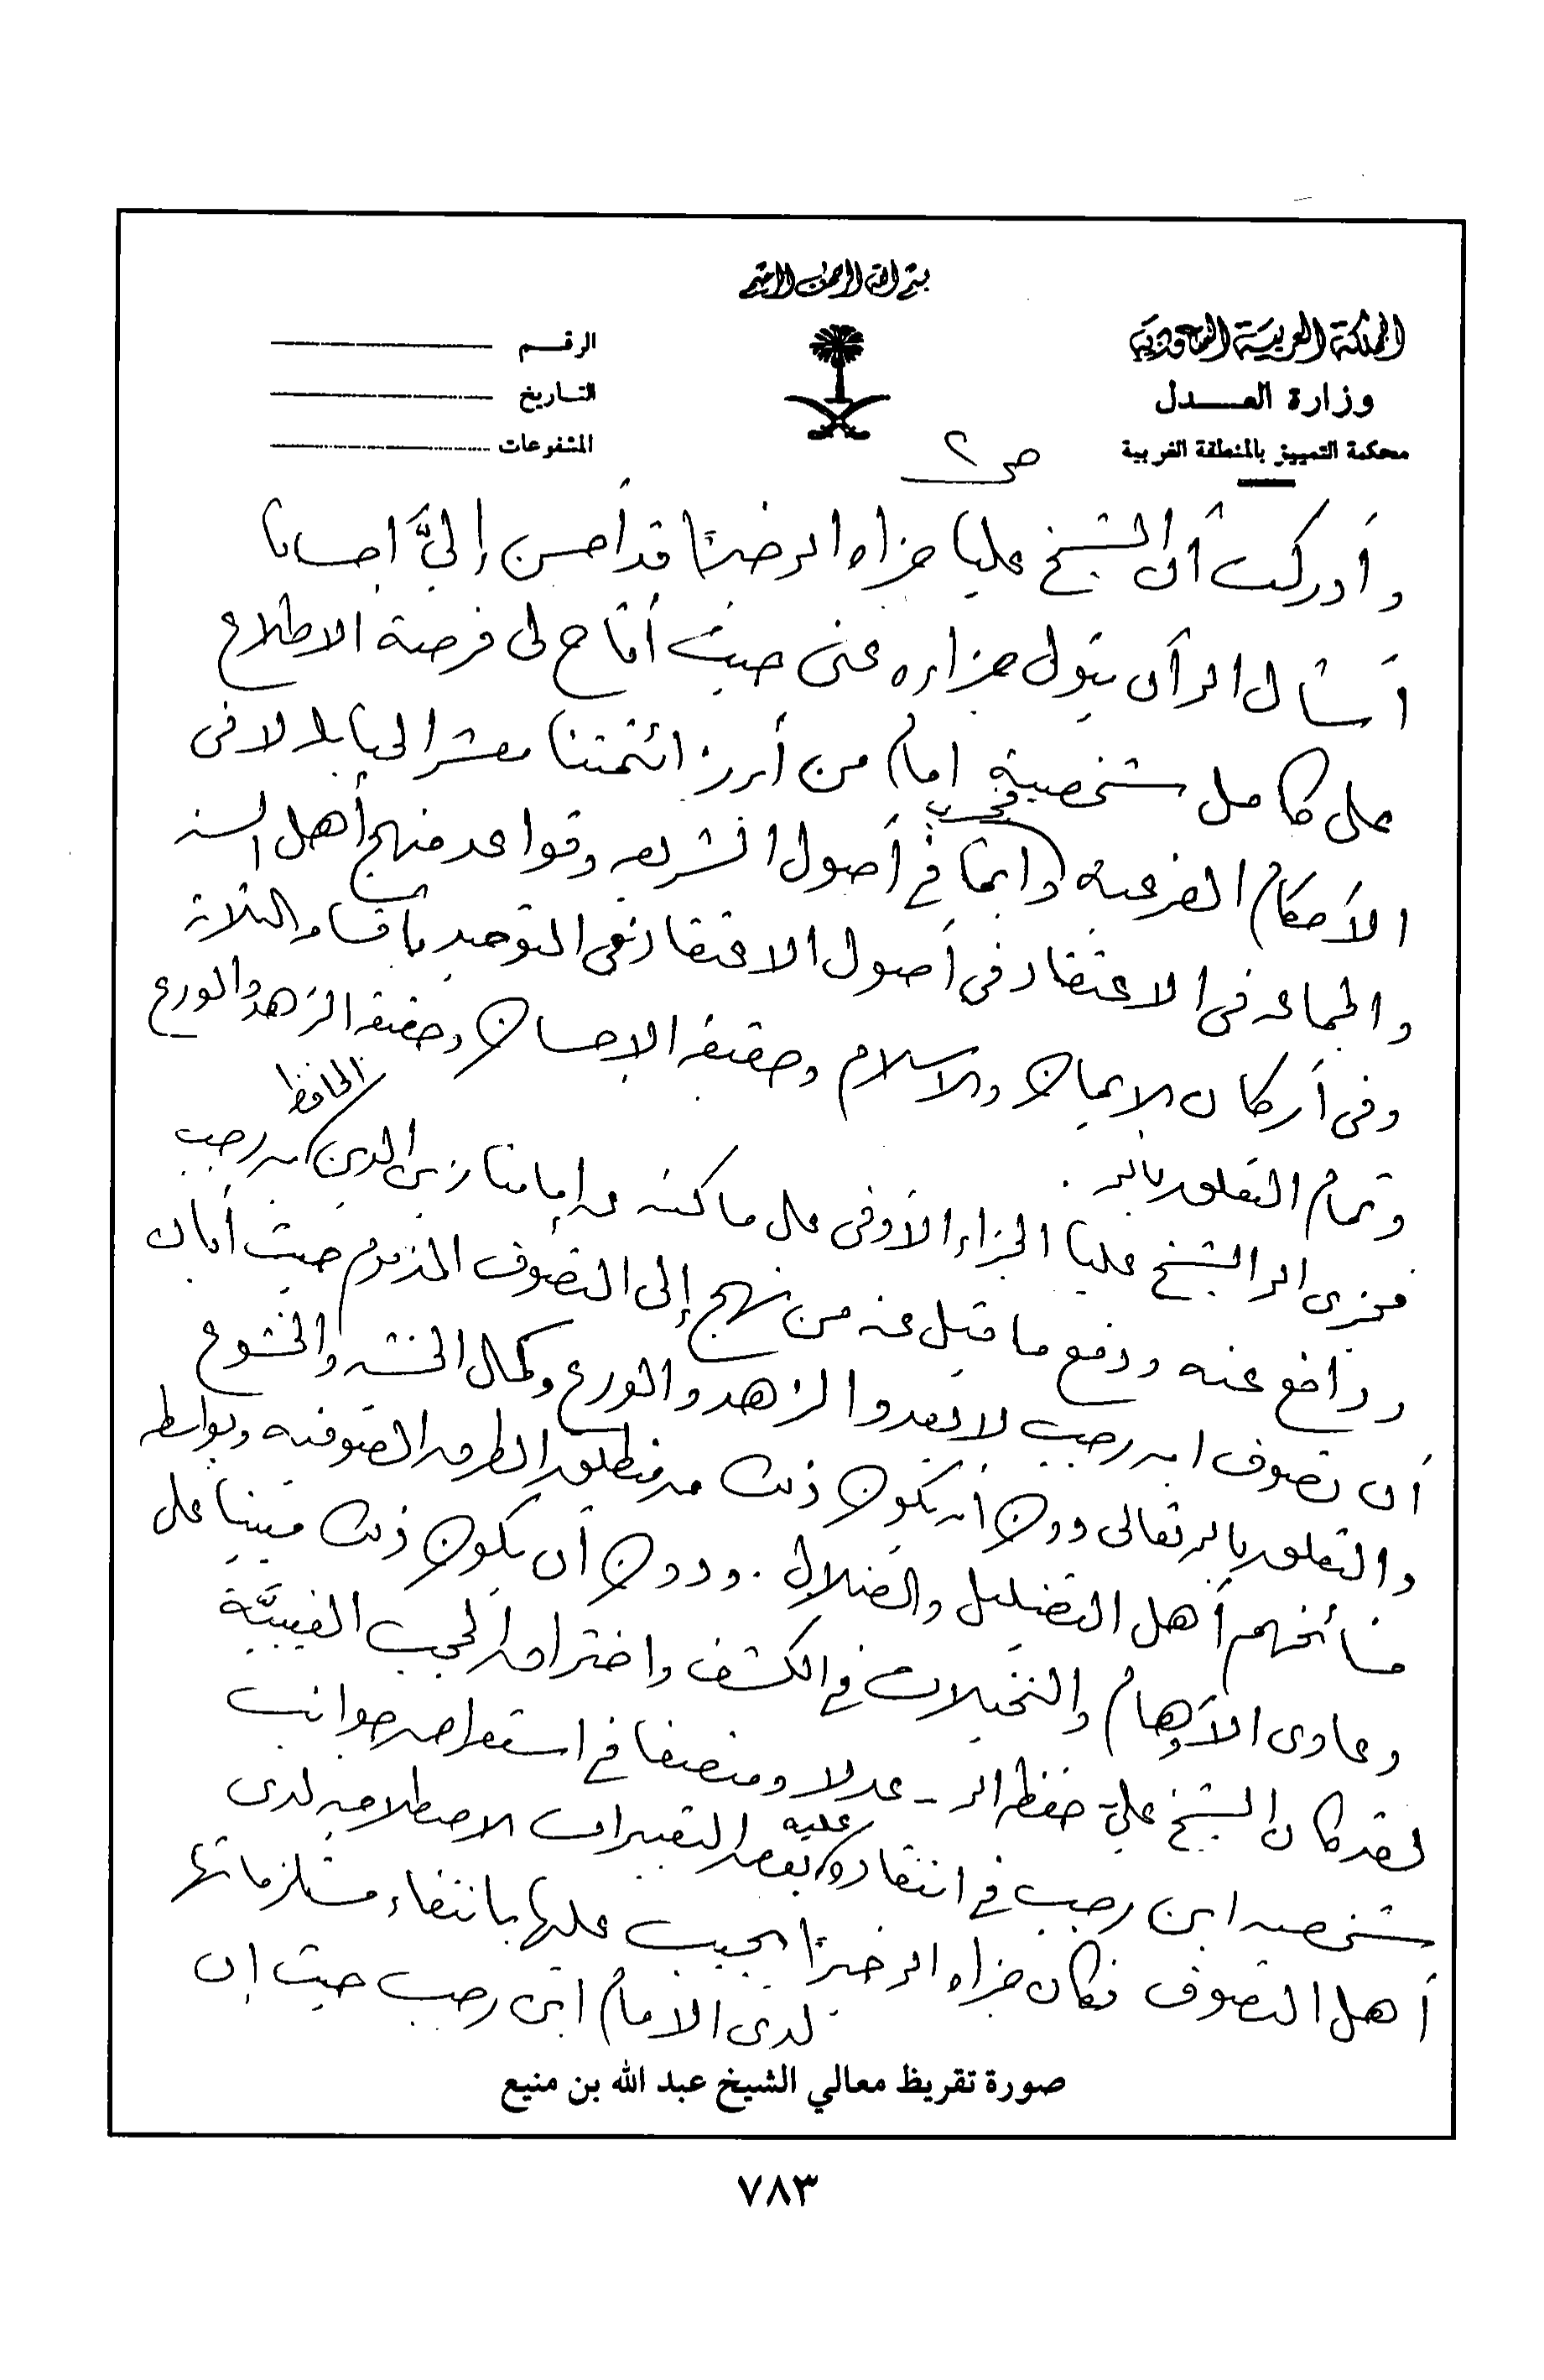 بسم الله الرحمن الرحيم
المملكة العربية السعودية
وزارة العدل
محكمة التمييز بالمنطقة الغربية
الرقم
التاريخ
المشفوعات
ص ٢
وأدركت أن الشيخ عليا جزاه الله خيرًا قد أحسن إليَّ احسانا
أسأل الله أن يتولى جزاءه عني حيث أتاح لي فرصة الاطلاع
على كامل شخصية امام من أبرز ائمتنا معشر الحنابلة لا في
الأحكام الفرعية فحسب وإنما في أصول الشريعة وقواعد منهج أهل السنة
والجماعة في الاعتقاد في أصول الاعتقاد وفي التوحيد بأقسامه الثلاثة
وفي أركان الإيمان والاسلام وحقيقة الإحسان وحقيقة الزهد والورع
وتمام التعلق بالله .
فجزى الله الشيخ عليا الجزاء الأوفى على ما كتبه عن إمامنا زين الدين الحافظ ابن رجب
ودافع عنه ودفع ما قيل عنه من نهج إلى التصوف المذموم حيث أبان
أن تصوف ابن رجب لا يعدوا الزهد والورع وكمال الخشية والخشوع
والتعلق بالله تعالى دون أن يكون ذلك من منطلق الطرق الصوفية وبواسطة
مشائخهم أهل التضليل والضلال . ودون أن يكون ذلك مبنيا على
دعاوى الأوهام والتخيلات في الكشف واختراق الحجب الغيبيَّة
لقد كان الشيخ علي - حفظه الله - عدلا ومنصفا في استعراضه جوانب
شخصية ابن رجب في انتقاده عليه بعض التعبيرات الاصطلاحية لدى
أهل التصوف فكان جزاه الله خيرًا يجيب عليها بانتفاء مستلزماتها
لدى الامام ابن رجب حيث إن
صورة تقريظ معالي الشيخ عبد الله بن منيع
٧٨٣